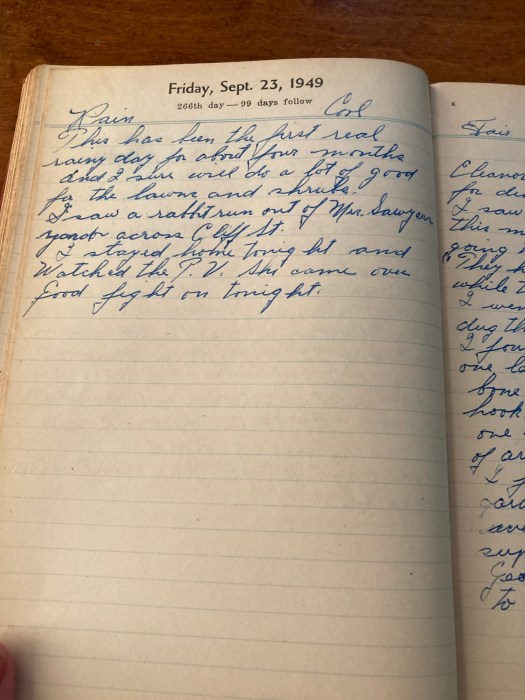 Friday, Sept. 23, 1949
266th day — 99 days follow
Rain Cool
This has been the first real
rainy day for about four months
and I sure will do a lot of good
for the lawns and shrubs.
I saw a rabbit run out of Mrs. Sawyers
yard across Cliff St.
I stayed home tonight and
Watched the T.V. Ski came over
Good fight on tonight.
x
Fair
Eleanor
for
I saw
this
going
They
while
I
dug
I
one
bone
hook
one
of
I
to